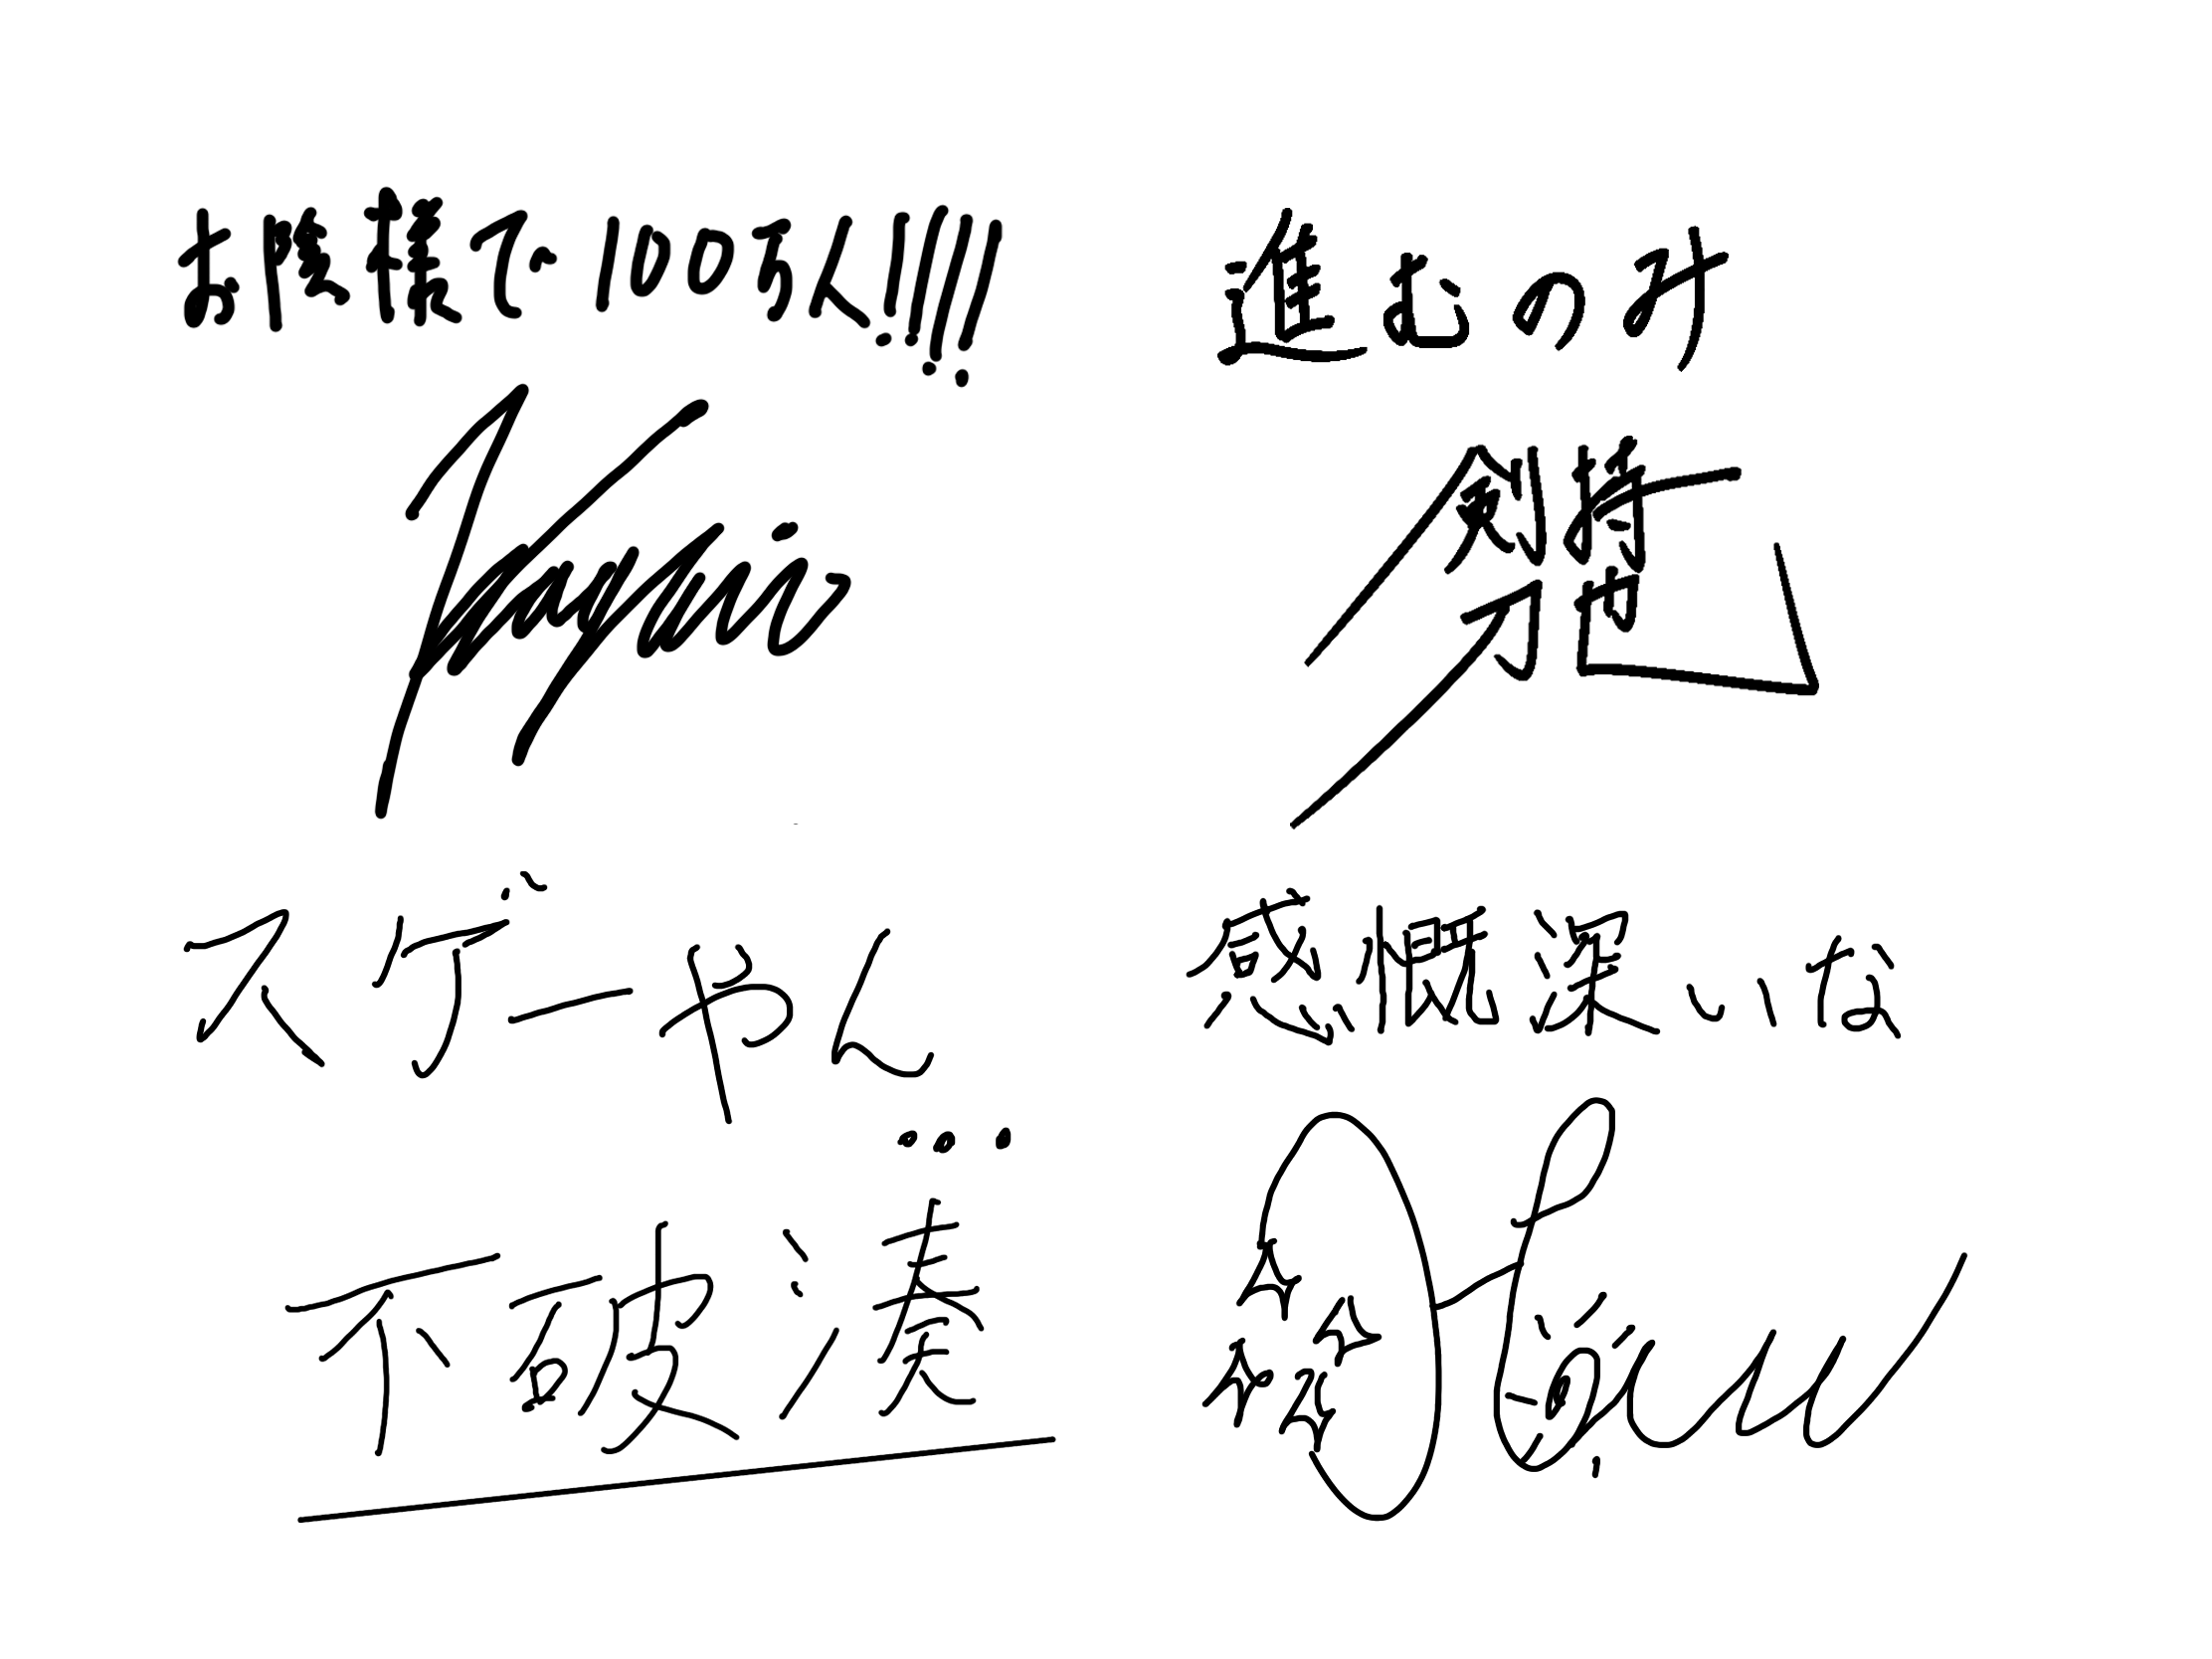 お陰様で100万人!!!!
進むのみ
剣持
刀也
スゲーやん
...
感慨深いな
不破湊